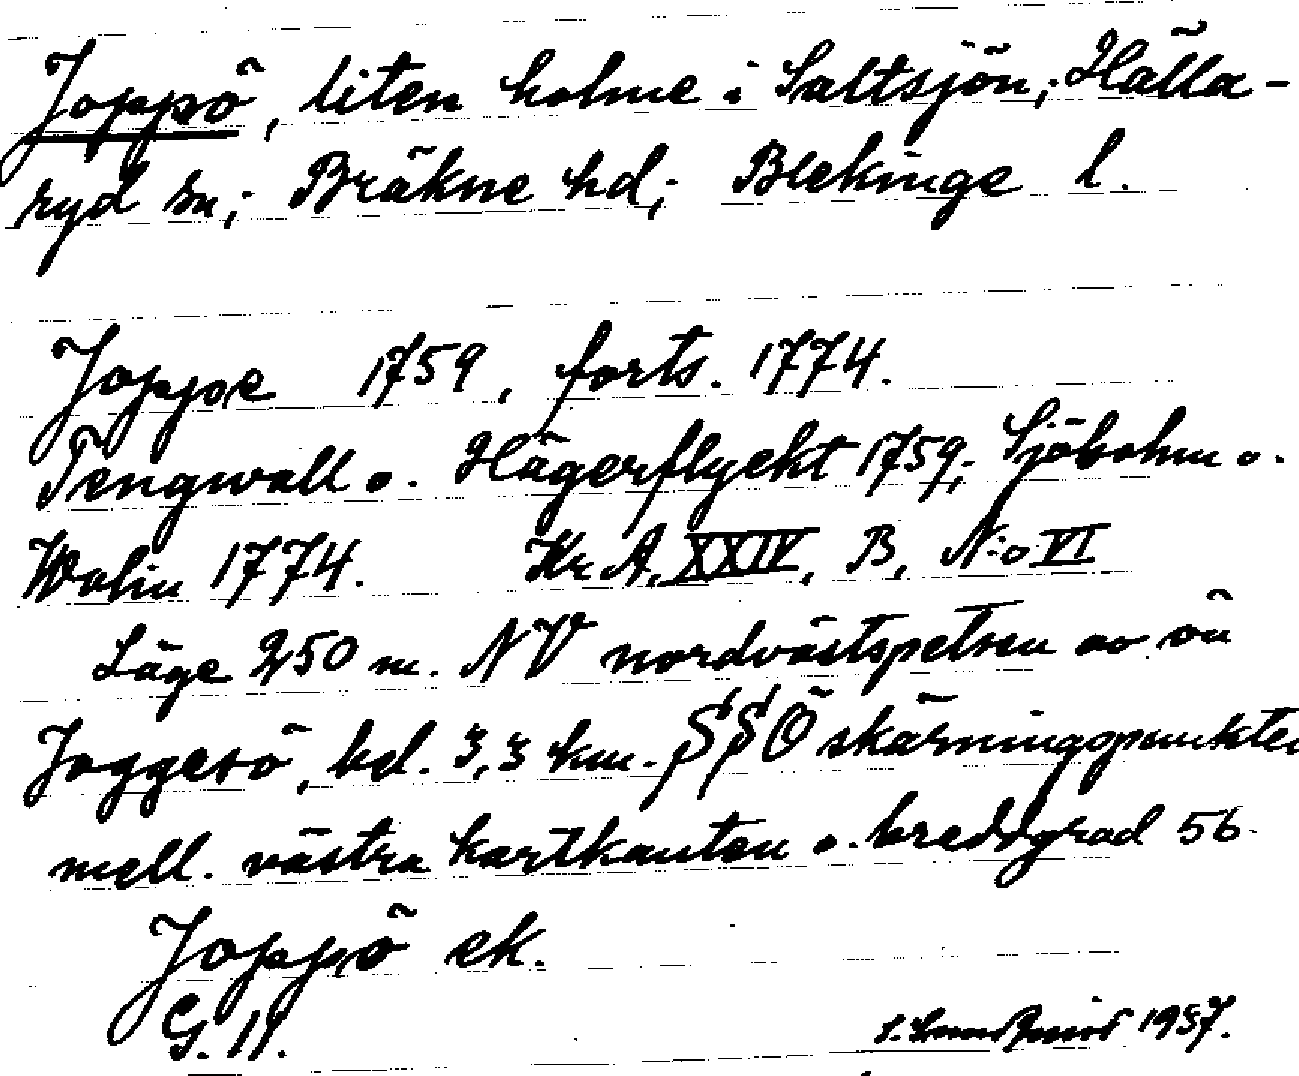 Joppö, liten holme i Saltsjön; Hälla-
ryd sn; Bräkne hd; Blekinge l.
Joppe 1759, forts. 1774.
Tengwall o. Hägerflyckt 1759; Sjöbohm o.
Wolin 1774. Kr A, XXIV, B, N:o VI
Läge 250 m. NV nordvästspetsen av ön
Joggesö, bel. 3,3 km. SSÖ skärningspunkten
mell. västra kartkanten o. breddgrad 56.
Joppö ek.
G. 11. 1957.